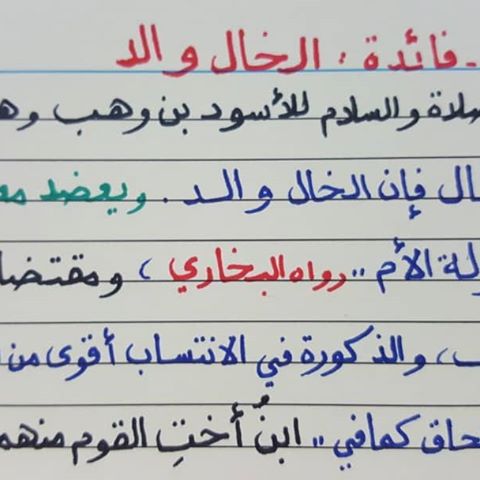 - فائدة : الخال والد
صلاة والسلام للأسود بن وهب وه
ال فإن الخال والد . ويعضد مع
لة الأم .. رواه البخاري ) ومقتضا
ب، والذكورة في الانتساب أقوى من
حاق كما في .. ابنُ أختِ القوم منهم